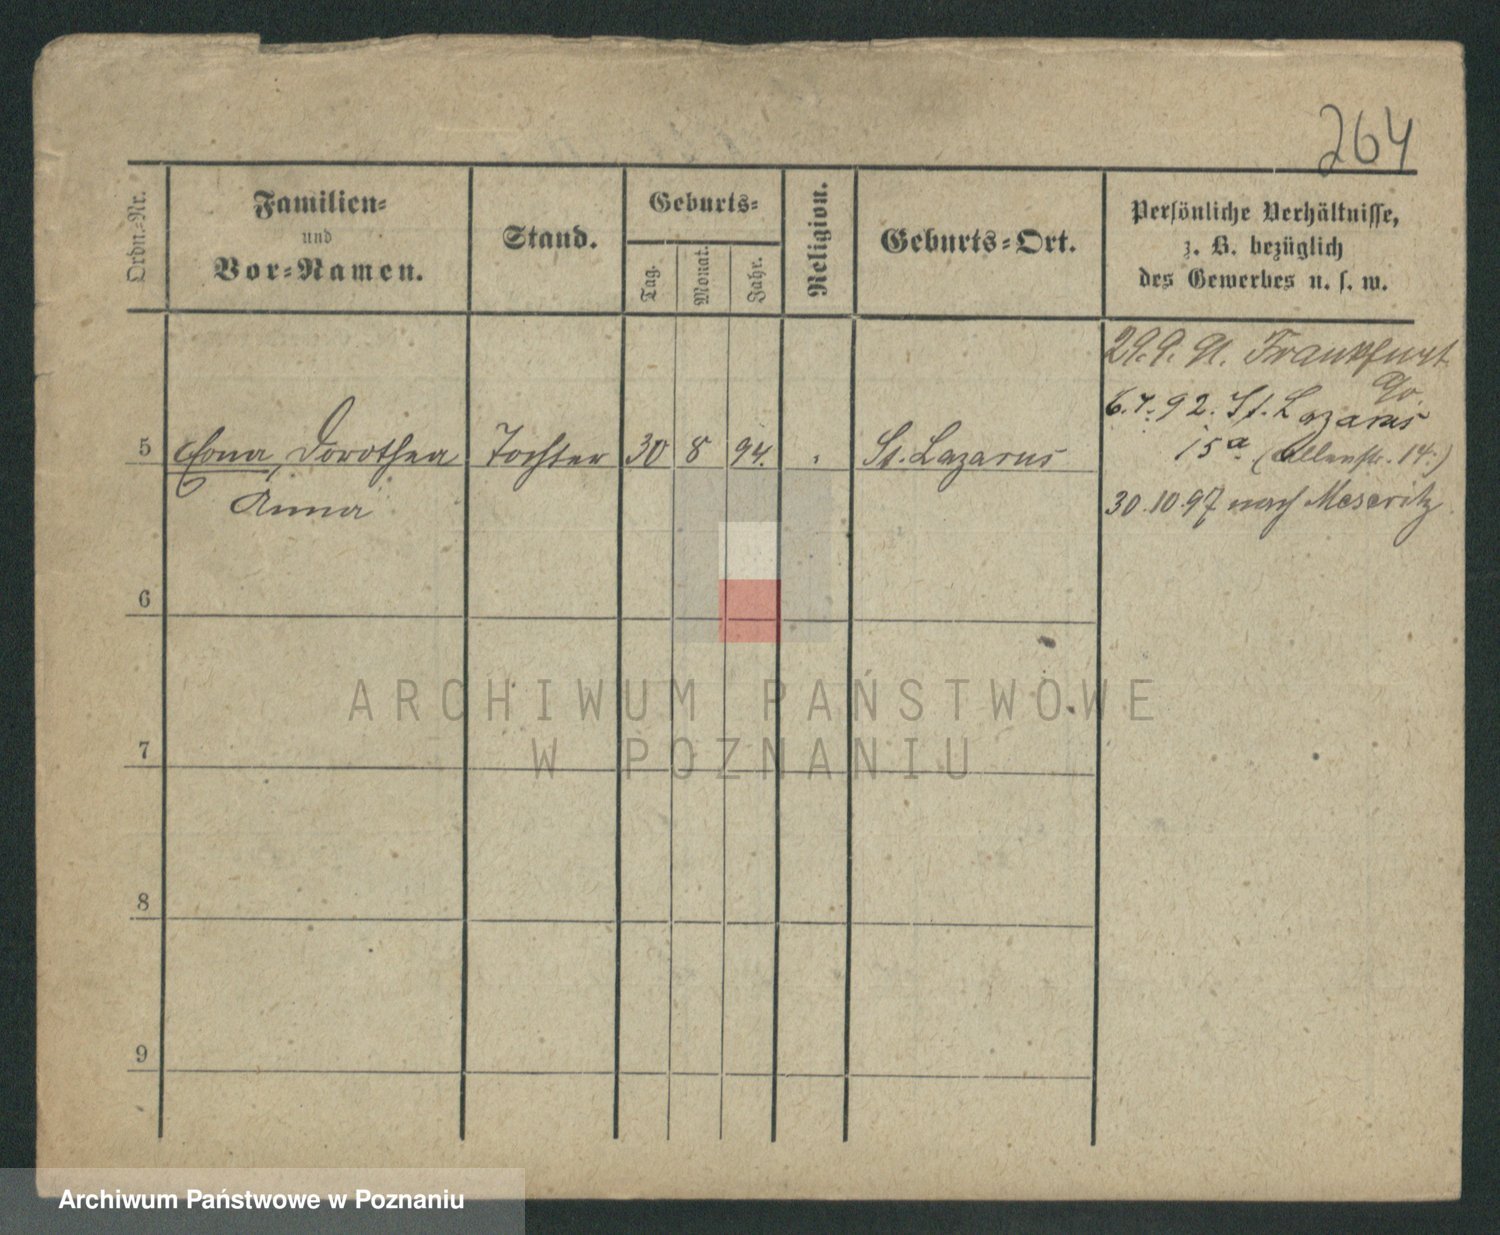 264
Ordn.-Nr.
Familien-
und
Vor-Namen.
Stand.
Geburts-
Tag.
Monat.
Jahr.
Religion.
Geburts-Ort.
Persönliche Verhältnisse,
z. B. bezüglich
des Gewerbes u. s. w.
29. 9. 91. Frankfurt
a/o.
6. 7. 92. St. Lazarus
15a (14.)
30. 10. 97 nach Meseritz
5 Dorothea Tochter 30 8 94. St. Lazarus
Anna
6
7
8
9
ARCHIWUM PAŃSTWOWE
W POZNANIU
Archiwum Państwowe w Poznaniu